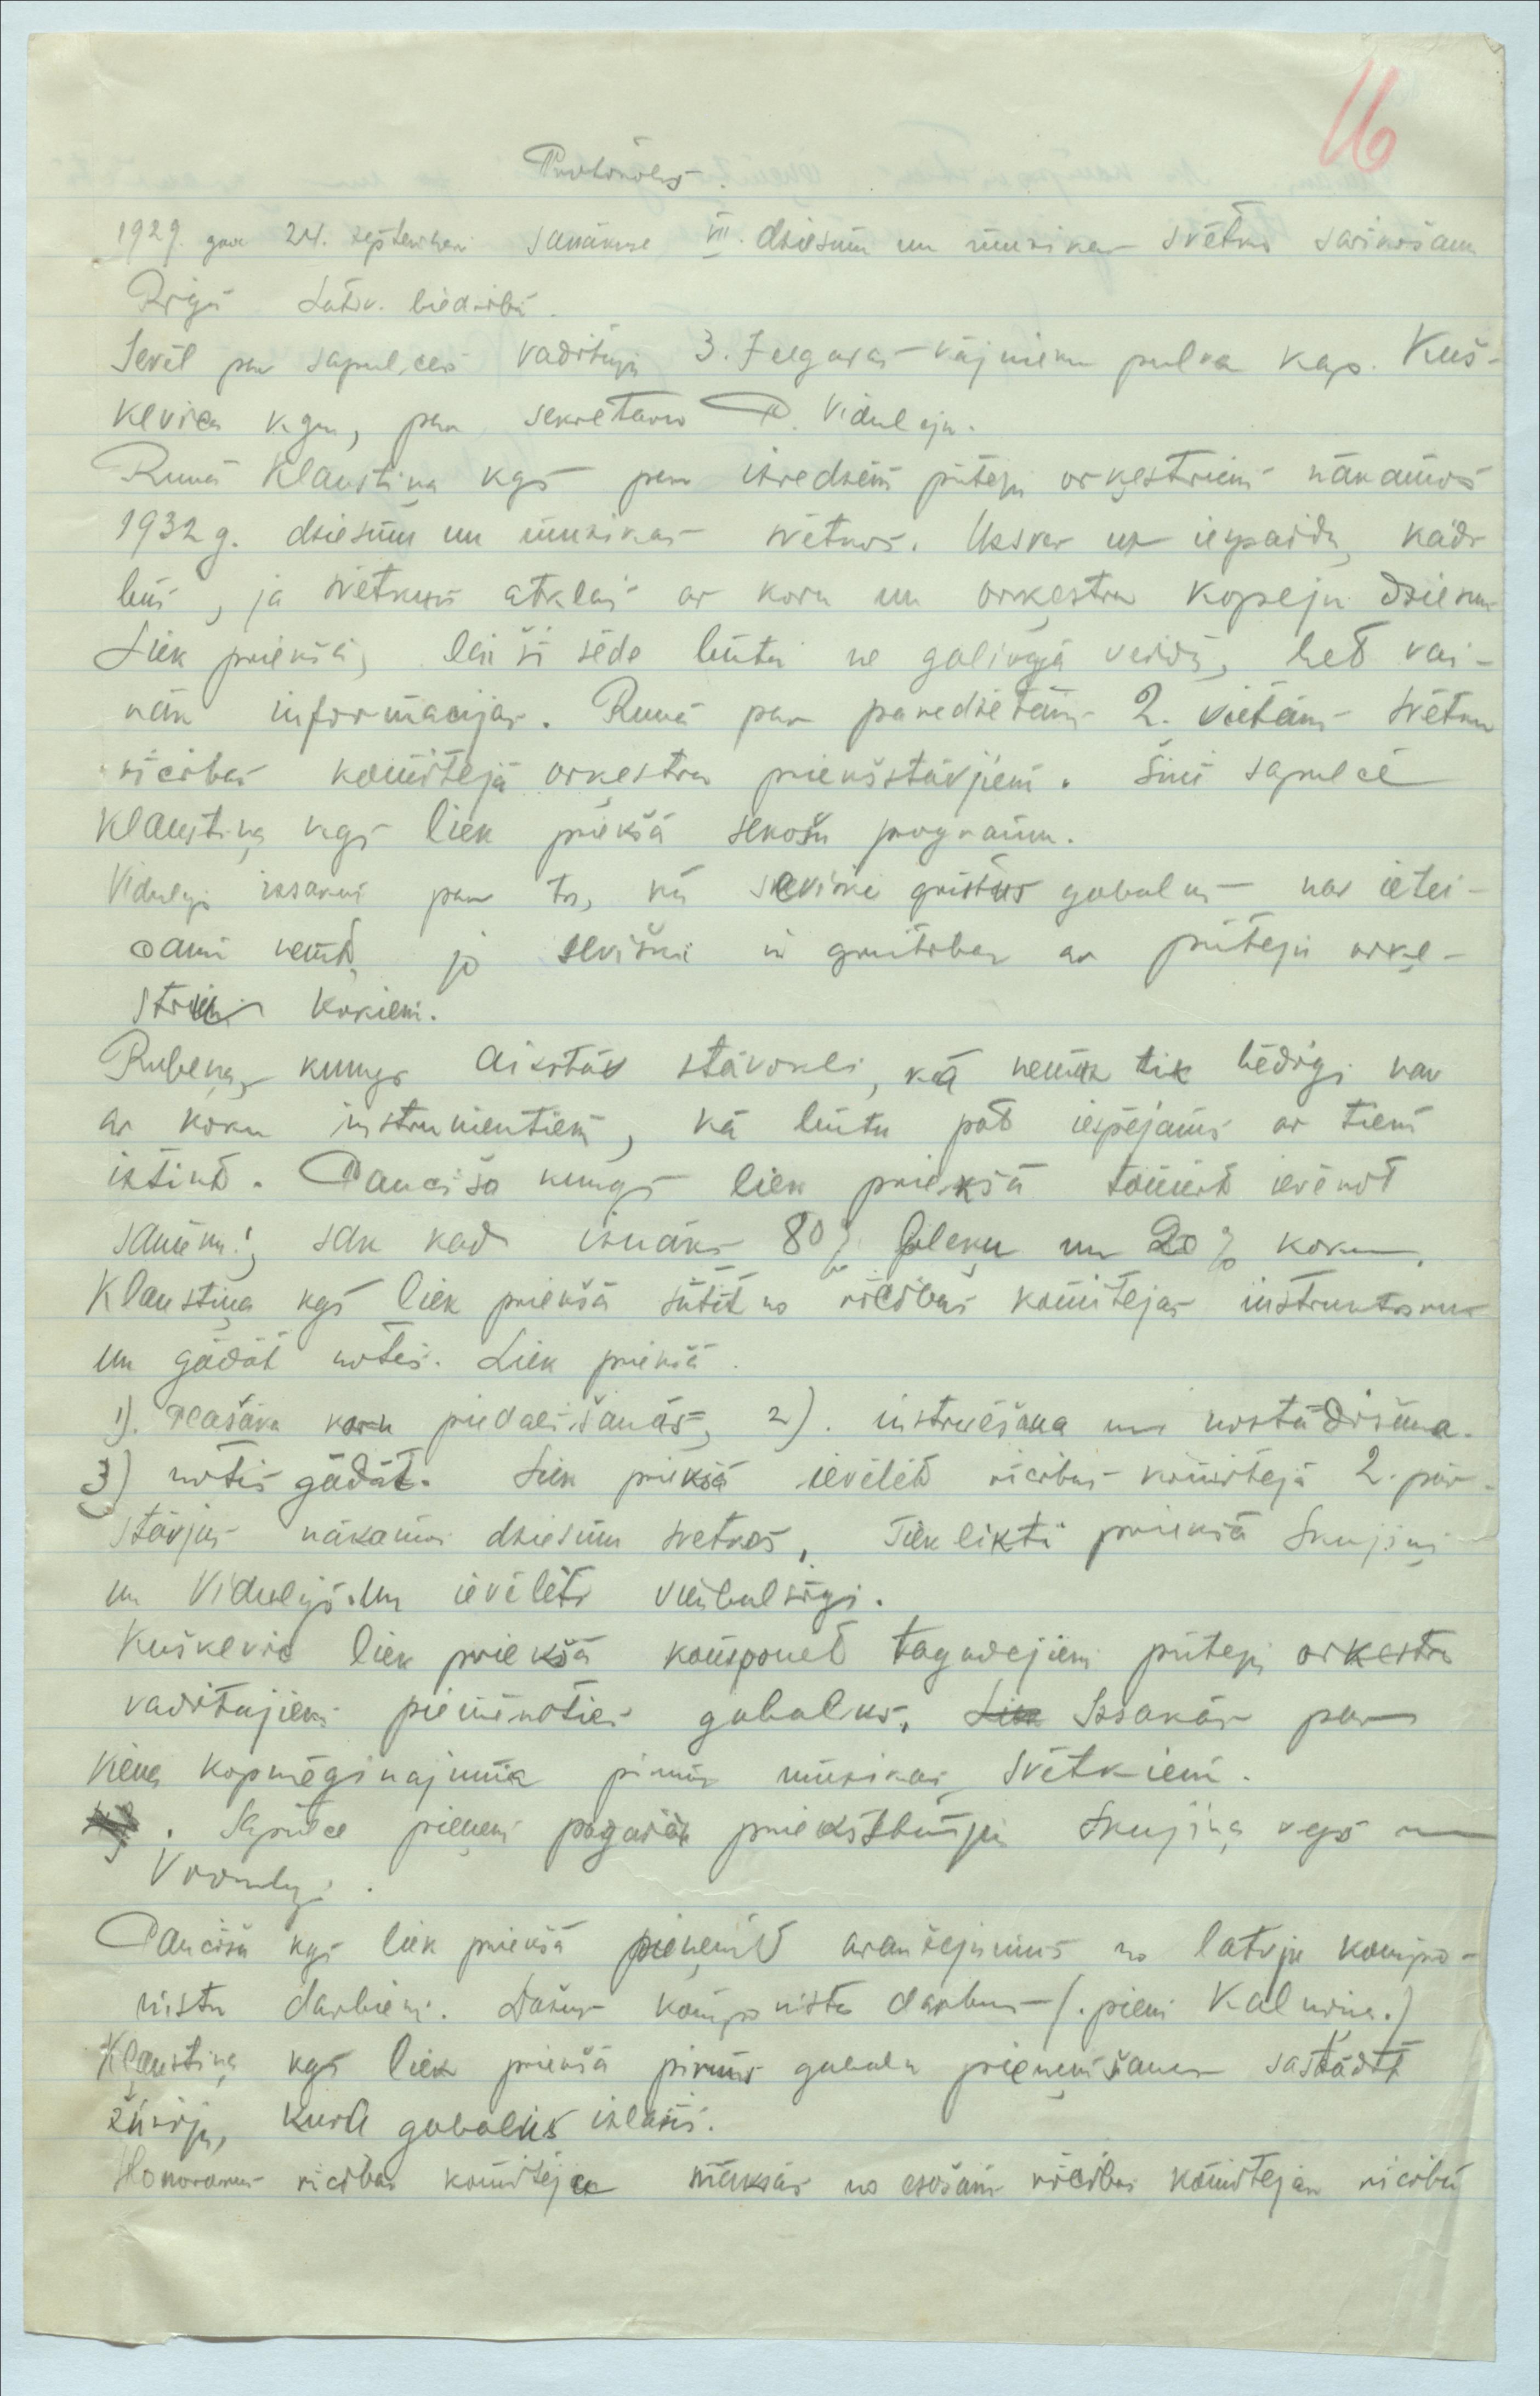 16
Protokols.
1929. gada 24. septembrī sanāksme VII. dziesmu un mūzikas svētku sarīkošanai
Rīgā Latv. biedrībā.
Ievēl par sapulces vadītāju 3. Jelgavas kājnieku pulka kap. Kuš-
kevica kgu, par sekretaru P. Viduleju.
Runā Klaustiņa kgs par izredzēm pūtēju orķestriem nākamos
1932 g. dziesmu un mūzikas svētkos. Uzsver uz iespaidu, kāds
būs, ja svētkus atklās ar koru un orķestru kopēju dziesmu
Liek priekšā, lai šī sēde būtu ne galīgā veidā, bet vai-
rāk informācijas. Runā par paredzētām 2. vietām svētku
rīcības komitejā orķestru priekšstāvjiem. Šinī sapulcē
Klaustiņa kgs liek priekšā sekošu programu.
Vidulejs izsakās par to, kā sevišķi grūtus gabalus nav ietei-
cami ņemt, jo sevišķi ir grūtības ar pūtēju orķe-
striem kokiem.
Rubeņa kungs aizstāv stāvokli, kā nemaz tik bēdīgi nav
ar koku instrumentiem, kā būtu pat iespējams ar tiem
iztikt. Pauciša kungs liek priekšā tomēr ievērot
samēru, sak kad iznāks 80% pleķu un 20% koku.
Klaustiņa kgs liek priekšā sūtīt no rīcības komitejas instruktorus
un gādāt notis. Liek priekšā.
1). Plašāka koru piedalīšanās, 2). instruēšana un nostādīšana.
3) notis gādāt. Liek priekšā ievēlēt rīcības komitejā 2. pār-
stāvjus nākamos dziesmu svētkos, Tiek likti priekšā Skujiņš
un Vidulejs. Un ievēlēti vienbalsīgi.
Kuškevic liek priekšā komponēt tagadējiem pūtēju orķestra
vadītājiem piemērotus gabalus. Liek Izsakās par
viena kopmēģinajuma pirms mūzikas svētkiem.
. Sapulce pieņem priekšlikumu Skujiņa kgs un
Vidulejs.
Pauciša kgs liek priekšā pieņemt aranžējumus no latvju kompo-
nistu darbiem. Dažus komponista darbus (. piem Kalniņa.)
Klaustiņa kgs liek priekšā pirms gabalu pieņemšanas sastādīt
žūriju, kura gabalus izlasīs.
Honorarus rīcības komiteja maksās no esošām rīcības komitejas rīcībā